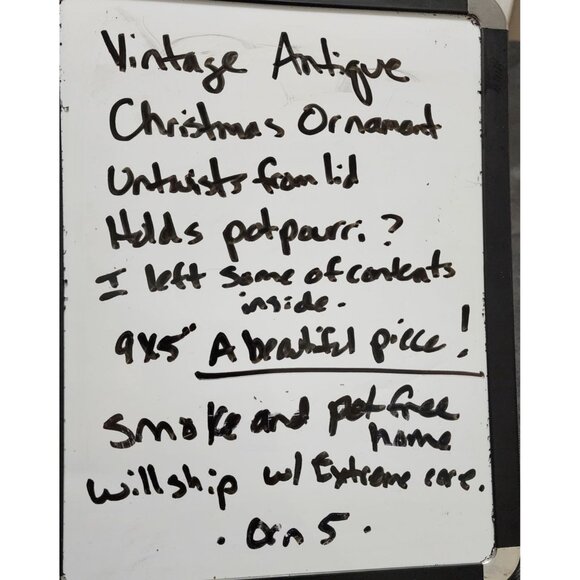 Vintage Antique
Christmas Ornament
Untwists from lid
Holds potpourri ?
I left some of contents
inside.
9x5" A beautiful piece!
smoke and pet free
home
will ship w/ Extreme care.
. Orn 5 .